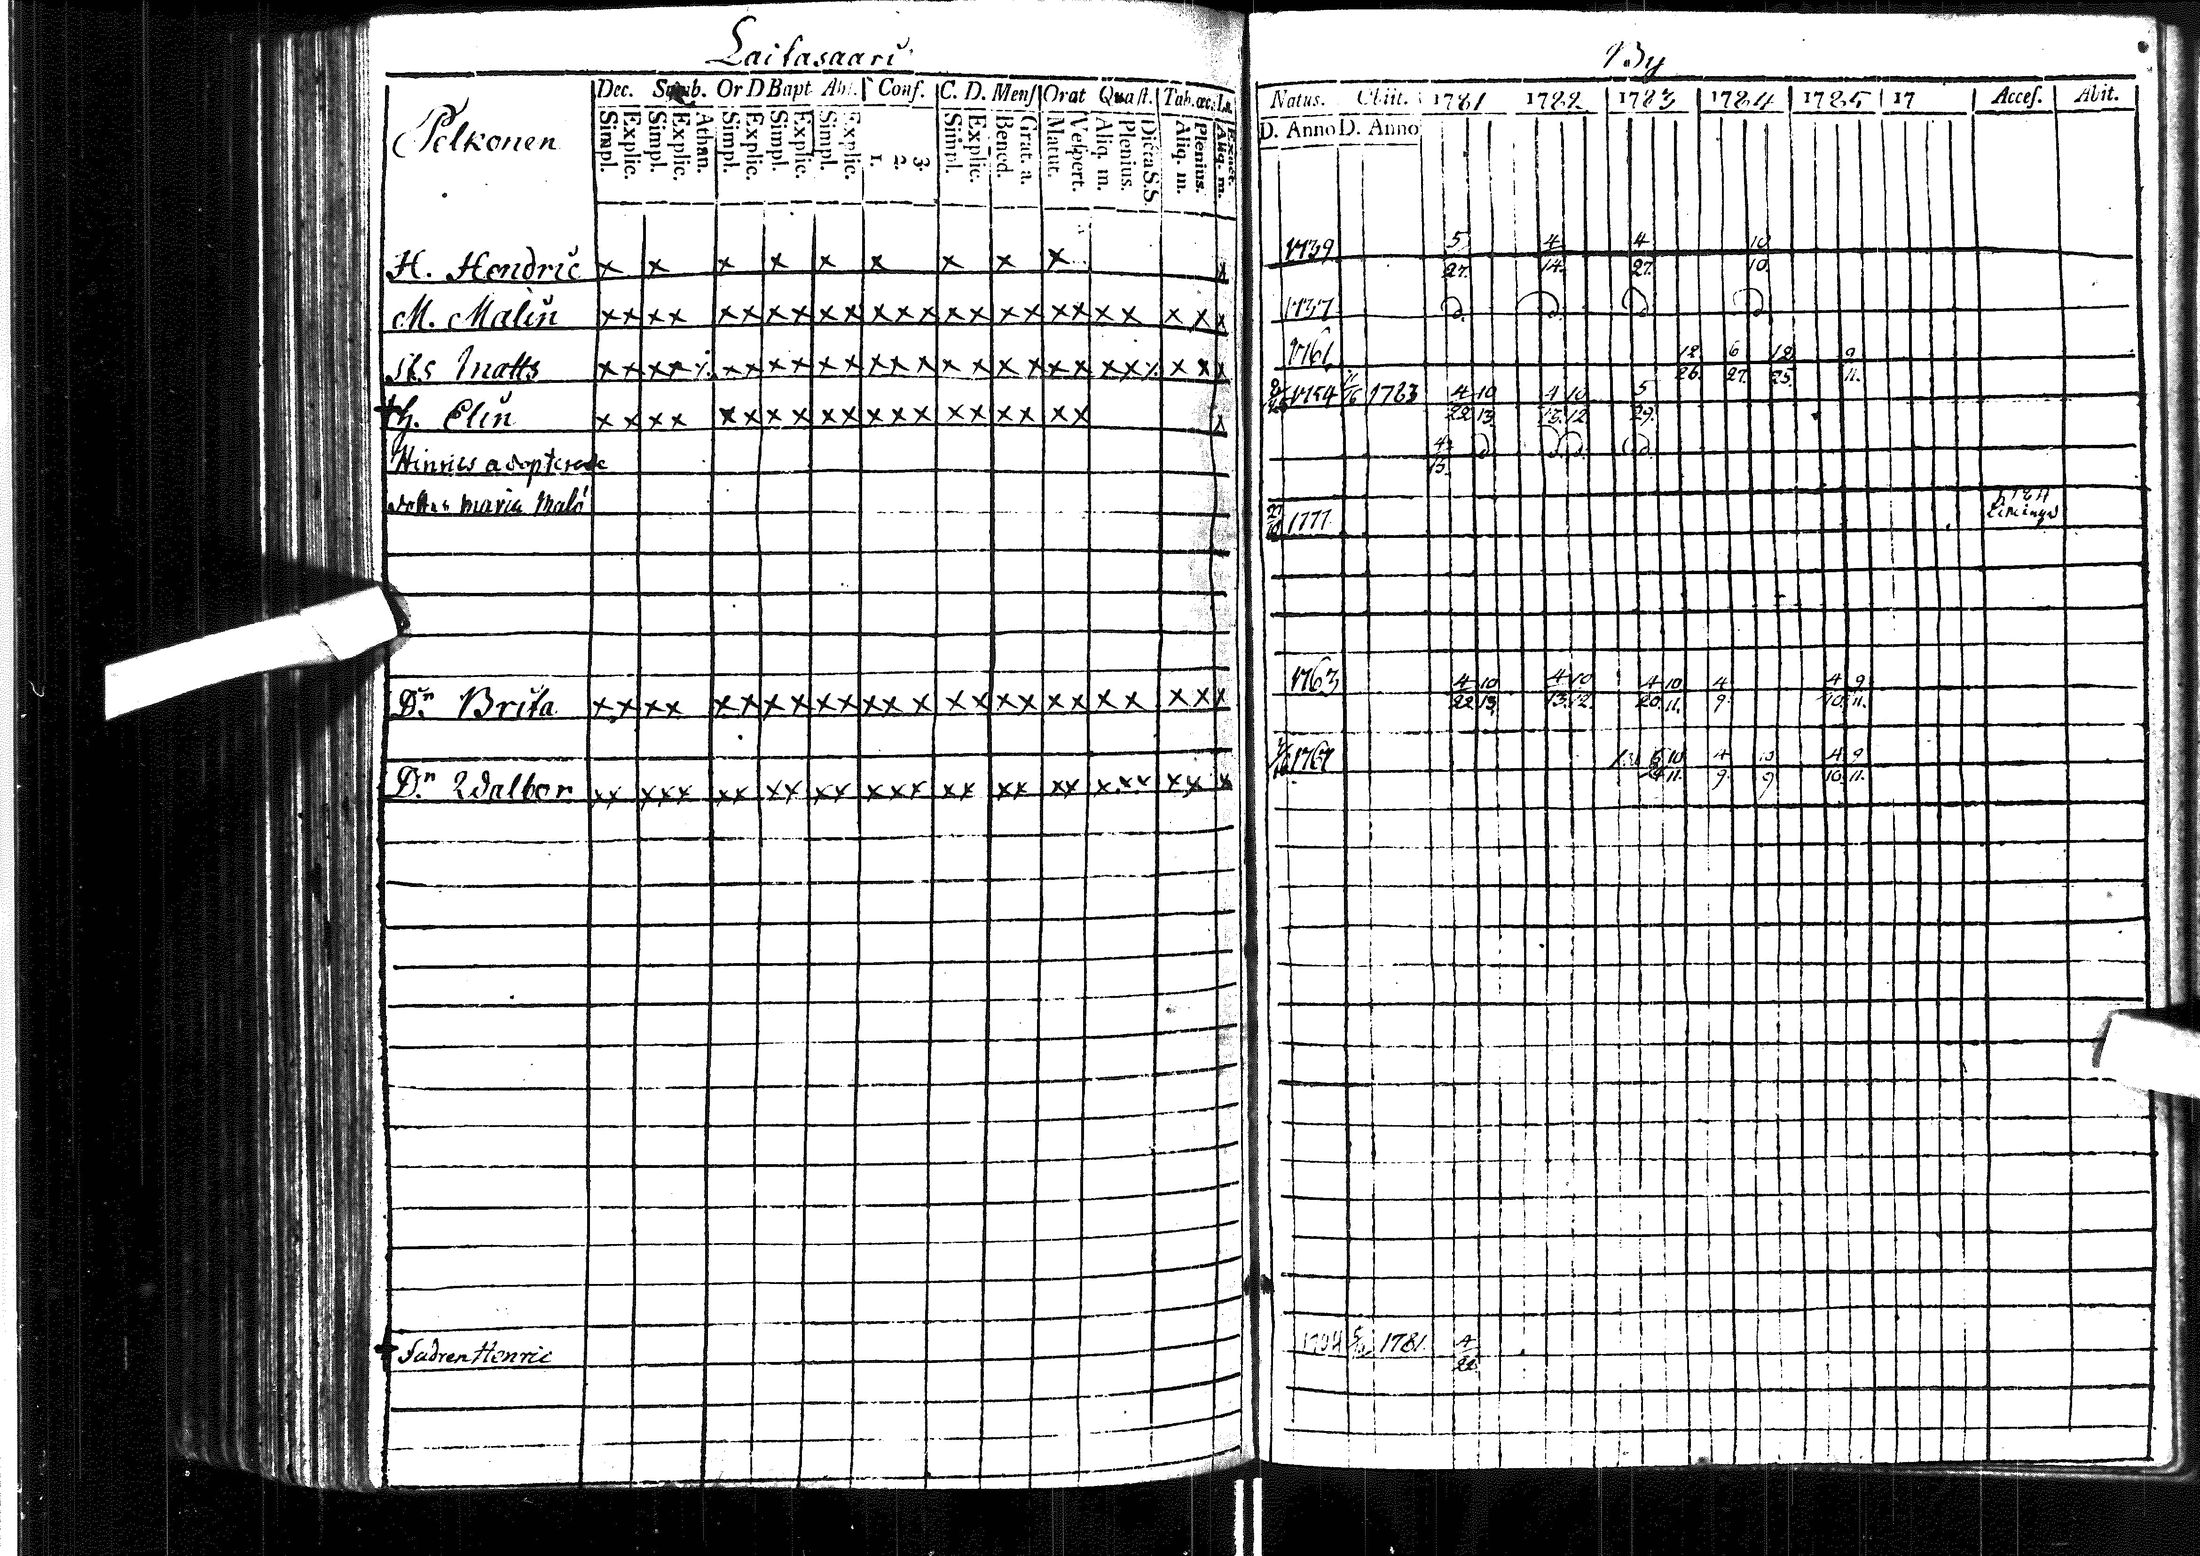 Laitasaari
By
Pelkonen
Dec. Simb. Or D Bapt Abs. Conf. C. D. Mens Orat Quæst. Tab. œc.
Simpl. Explic. Simpl. Explic. Athan. Simpl. Explic. Simpl. Explic. Simpl. Explic. 1. 2. 3. Simpl. Explic. Bened. Grat. a. Matut. Vespert. Aliq. m. Plenius. Dicta S.S. Aliq. m. Plenius. Aliq. m.
Natus. Obiit. 1781 1782 1783 1784 1785 17 Acces. Abit.
D. Anno D. Anno
H. Hendric x x x x x x x x x x 1739 5/27. 4/14. 4/27. 10/10.
M. Malin xx xx xx xx xx xxx xx xx xx xx x x x 1737
Matts xx xx xx xx xx xxx x x x x xx xxx x x x 1761 12/26. 6/27. 12/25. 9/11.
† h. Elin x x x x xx xx xx xxx xx xx xx x 1754 1783 4/22 10/13 4/13. 10/12. 5/29.
Hinrics adopterade
dotter maria Malö 1777 Limingo
Dr. Brita xx xx xx xx xx xx x xx xx xx x x x x x 1763 4/22 10/13 4/13. 10/12. 4/20 10/11. 4/9. 4/10. 9/11.
Dr Walbor xx xxx xx xx xx xxx xx xx xx xxx xx x 1767 10/11. 4/9. 4/10. 9/11.
† Fadren Henric 1781. 4/22